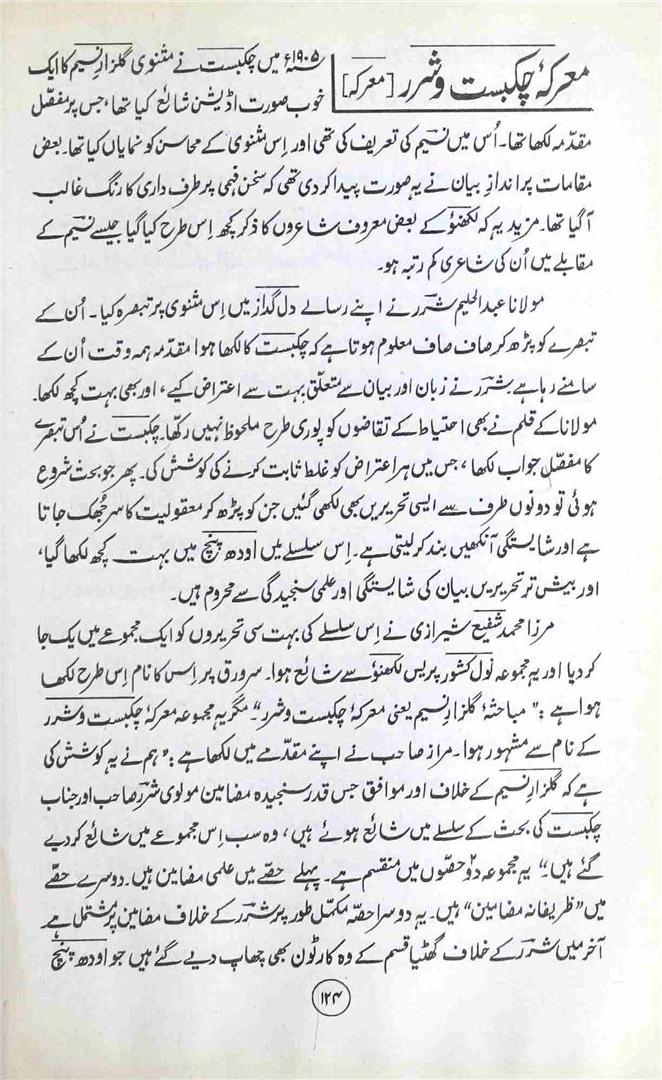 معرکۂ چکبست و شرر [معرکہ]
۱۹۰۵ء میں چکبست نے مثنوی گلزارِ نسیم کا ایک
خوب صورت اڈیشن شائع کیا تھا، جس پر مفصّل
مقدّمہ لکھا تھا۔ اُس میں نسیم کی تعریف کی تھی اور اِس مثنوی کے محاسن کو نمایاں کیا تھا۔ بعض
مقامات پر اندازِ بیان نے یہ صورت پیدا کر دی تھی کہ سخن فہمی پر طرف داری کا رنگ غالب
آ گیا تھا۔ مزید یہ کہ لکھنؤ کے بعض معروف شاعروں کا ذکر کچھ اِس طرح کیا گیا جیسے نسیم کے
مقابلے میں اُن کی شاعری کم رتبہ ہو۔
مولانا عبدالحلیم شرر نے اپنے رسالے دل گداز میں اِس مثنوی پر تبصرہ کیا۔ اُن کے
تبصرے کو پڑھ کر صاف صاف معلوم ہوتا ہے کہ چکبست کا لکھا ہوا مقدّمہ ہمہ وقت اُن کے
سامنے رہا ہے۔ شرر نے زبان اور بیان سے متعلّق بہت سے اعتراض کیے، اور بھی بہت کچھ لکھا۔
مولانا کے قلم نے بھی احتیاط کے تقاضوں کو پوری طرح ملحوظ نہیں رکھا۔ چکبست نے اُس تبصرے
کا مفصّل جواب لکھا، جس میں ہر اعتراض کو غلط ثابت کرنے کی کوشش کی۔ پھر جو بحث شروع
ہوئی تو دونوں طرف سے ایسی تحریریں بھی لکھی گئیں جن کو پڑھ کر معقولیت کا سر جُھک جاتا
ہے اور شایستگی آنکھیں بند کر لیتی ہے۔ اِس سلسلے میں اودھ پنچ میں بہت کچھ لکھا گیا،
اور بیش تر تحریریں بیان کی شایستگی اور علمی سنجیدگی سے محروم ہیں۔
مرزا محمد شفیع شیرازی نے اِس سلسلے کی بہت سی تحریروں کو ایک مجموعے میں یک جا
کر دیا اور یہ مجموعہ نول کشور پریس لکھنؤ سے شائع ہوا۔ سرورق پر اِس کا نام اِس طرح لکھا
ہوا ہے: "مباحثۂ گلزارِ نسیم یعنی معرکۂ چکبست و شرر" مگر یہ مجموعہ معرکۂ چکبست و شرر
کے نام سے مشہور ہوا۔ مراز صاحب نے اپنے مقدّمے میں لکھا ہے: "ہم نے یہ کوشش کی
ہے کہ گلزارِ نسیم کے خلاف اور موافق جس قدر سنجیدہ مضامین مولوی شرر صاحب اور جناب
چکبست کی بحث کے سلسلے میں شائع ہوئے ہیں، وہ سب اِس مجموعے میں شائع کر دیے
گئے ہیں۔" یہ مجموعہ دو۲ حصّوں میں منقسم ہے۔ پہلے حصّے میں علمی مضامین ہیں۔ دوسرے حصّے
میں "ظریفانہ مضامین" ہیں۔ یہ دوسرا حصّہ مکمّل طور پر شرر کے خلاف مضامین پر مشتمل ہے۔
آخر میں شرر کے خلاف گھٹیا قسم کے وہ کارٹون بھی چھاپ دیے گئے ہیں جو اودھ پنچ
۱۲۴